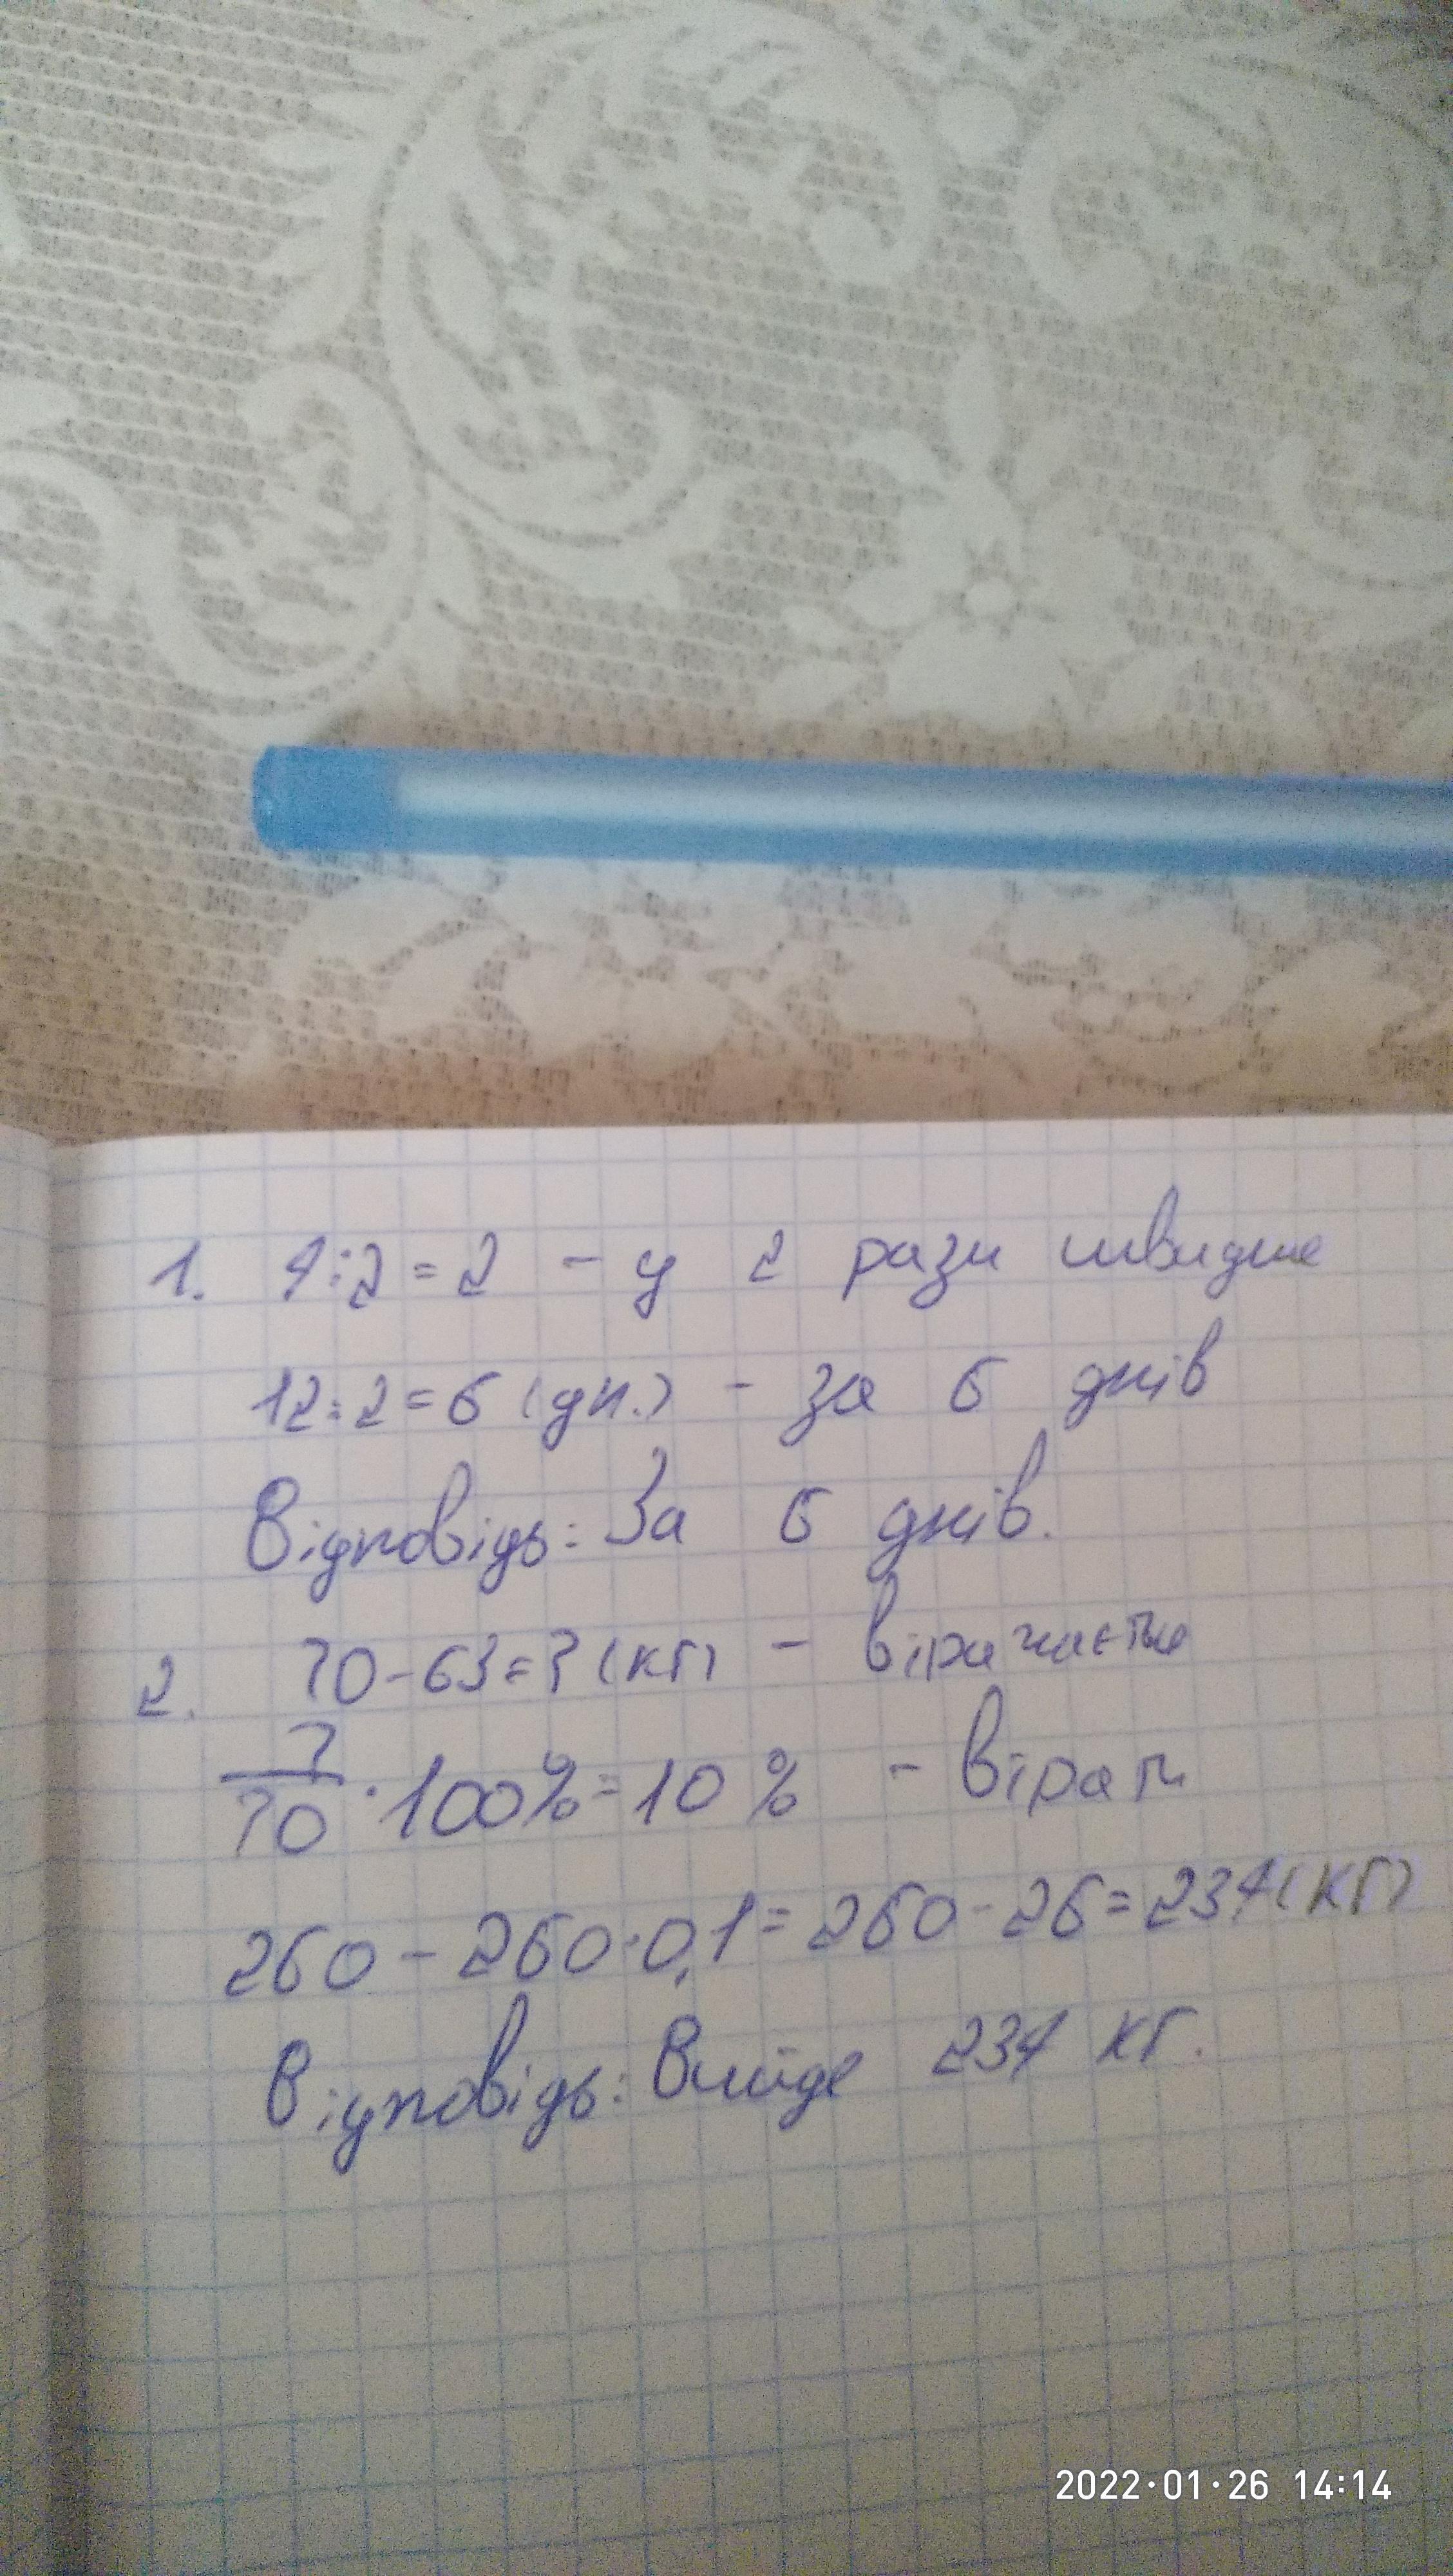 1. 4:2=2 - у 2 рази швидше
12:2=6 (дн.) - за 6 днів
Відповідь: За 6 днів.
2. 70-63=7 (кг) -
7/70 · 100% = 10 % - вірат
260 - 260·0,1 = 260 - 26 = 234 (кг)
Відповідь: Вийде 234 кг.
2022·01·26 14:14